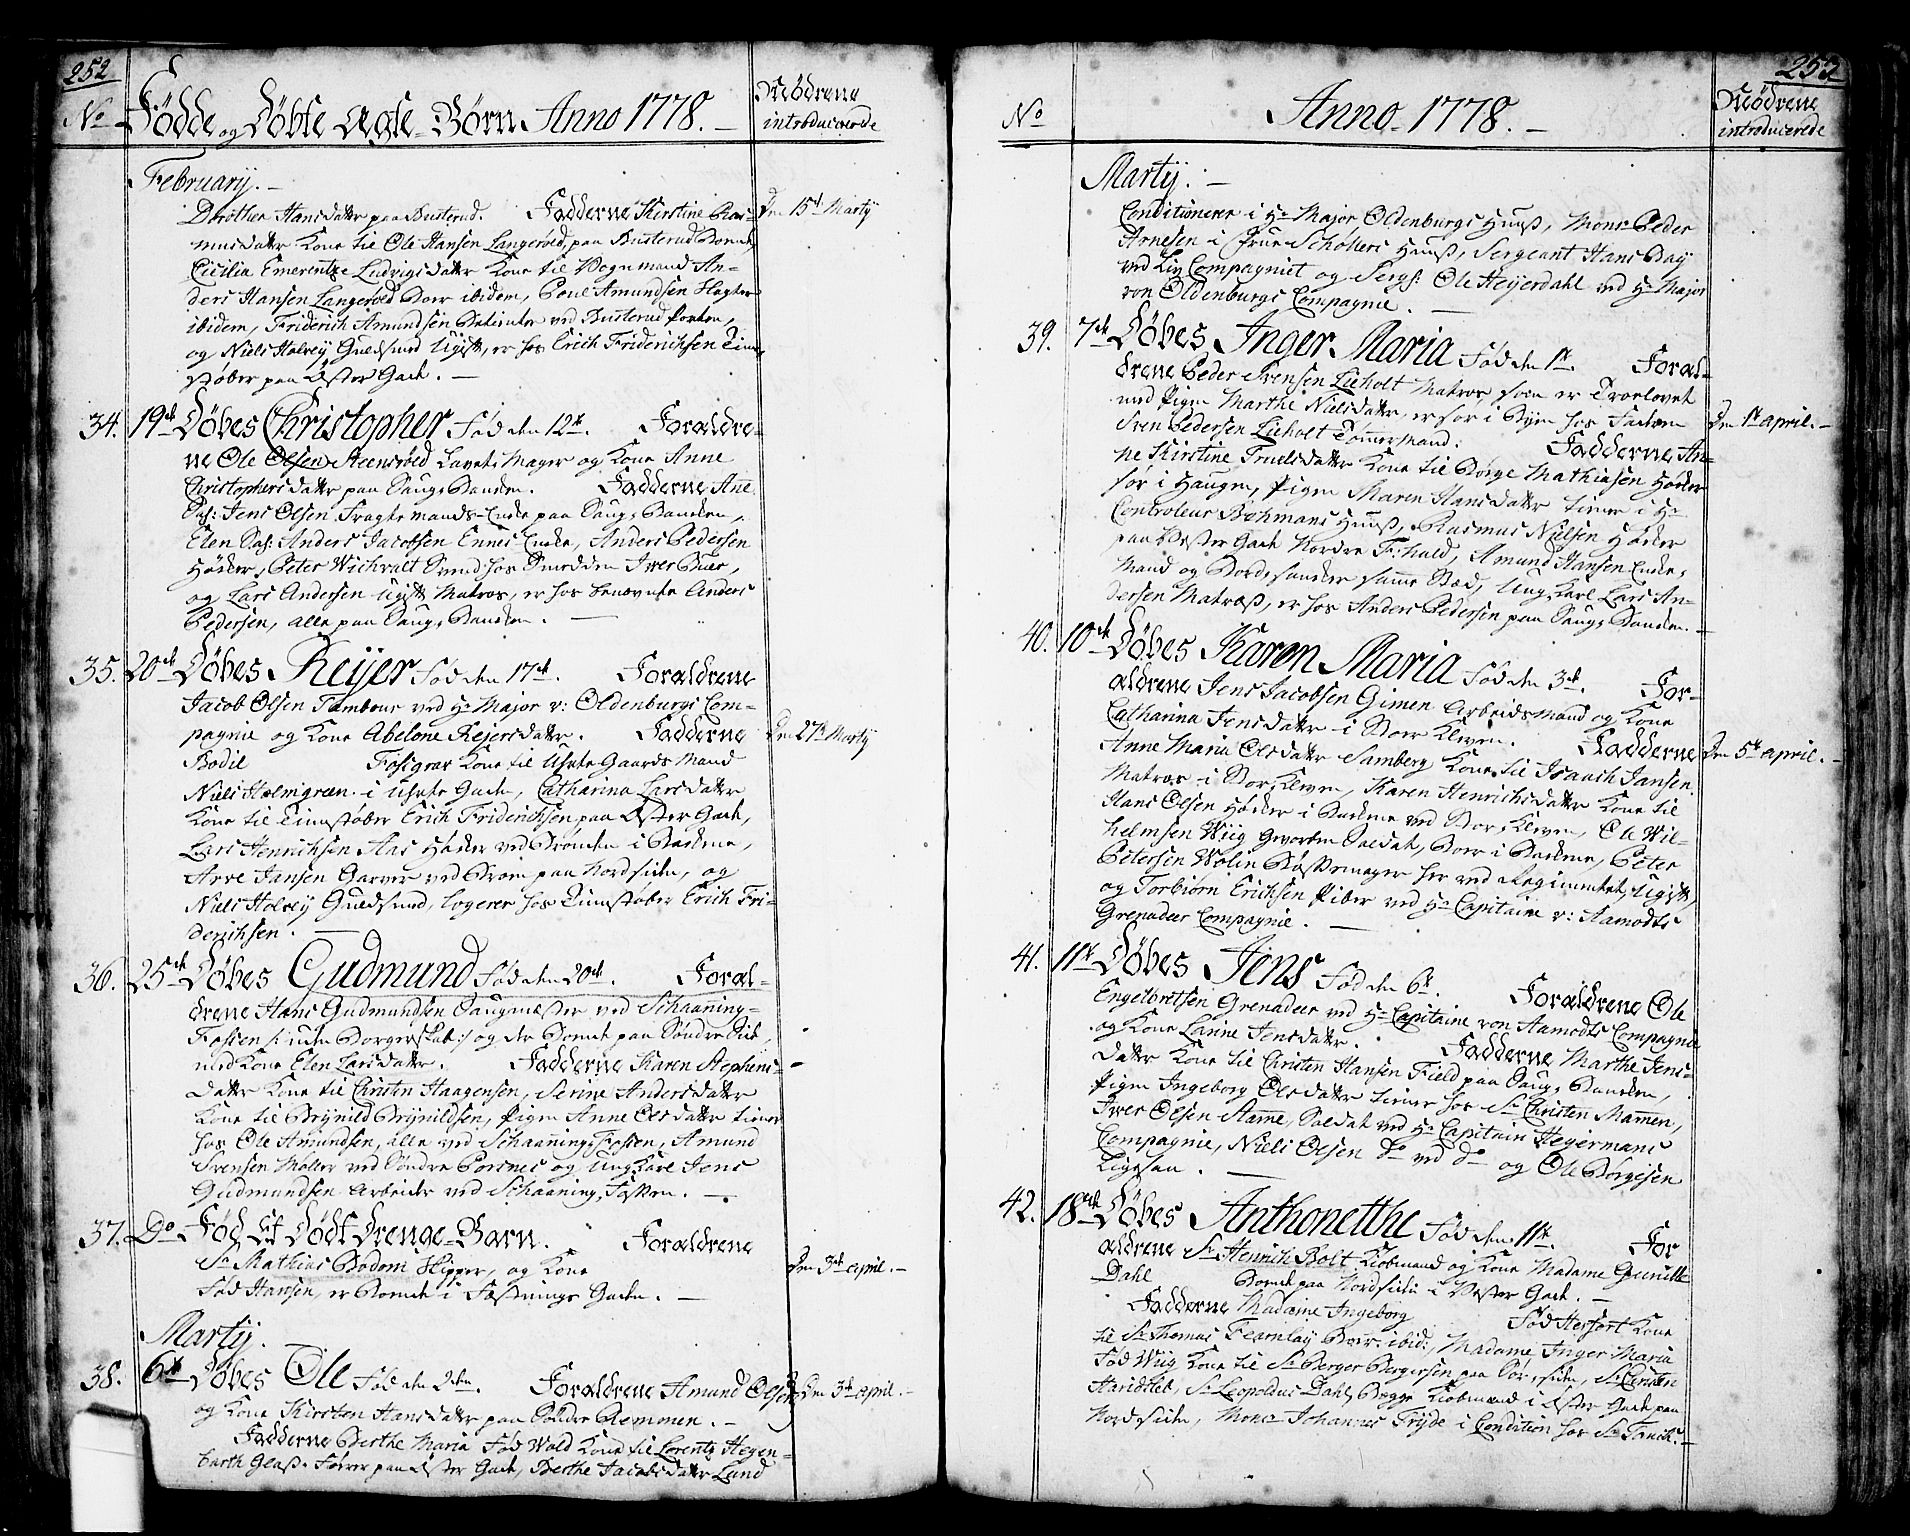 252
No Fødde og Døbte Ægte-Børn Anno 1778. Mødrene introducerede
February.
Dorothea Hansdatter paa Busterud. Fadderne Kirstine Ras- Den 15de Martÿ
musdatter Kone til Ole Hansen Langerød, paa Busterud Boende,
Cicilia Emerentze Ludvigsdatter Kone til Vognmand An-
ders Hansen Langerød Boer ibidem, Poul Amundsen Slagter
ibidem, Friderich Amundsen Betienter ved Busterud Porten,
og Niels Holvey Guldsmed Ugift, er hos Erich Friderichsen Tinn
støber paa Øster Gade.
34. 19de Døbes Christopher Fød den 12te. Forældre-
ne Ole Olsen Steensrød Lavets Mager og Kone Anne
Christophersdatter paa Saug-Banden. Fadderne Ane
Sal: Jens Olsen Fragtemands-Enke paa Saug-Banden,
Elen Sal: Anders Jacobsen Ennes-Enke, Anders Pedersen
Høcker, Peter Wichvalt Svend hos Smedden Iver Buer,
og Lars Andersen Ugift Matros, er hos benævnte Anders
Pedersen, alle paa Saug-Banden.
35. 20de Døbes Reÿer Fød den 17de. Forældrene
Jacob Olsen Tambour ved Hr Major v: Oldenburgs Com-
pagnie og Kone Abelone Reiersdatter. Fadderne Den 27de Martÿ
Bodil Fosgrav Kone til Uhrte Gaards Mand
Niels Holmgreen i Uhrte Gade, Catharina Larsdatter
Kone til Tinnstøber Erich Friderichsen paa Øster Gade,
Lars Henrichsen Aas Høcker ved Strømde i Bakkene,
Arve Jansen Garver ved Broen paa Nordsiden, og
Niels Holvey Guldsmed, logerer hos Tinnstøber Erich Fri-
derichsen.
36. 25de Døbes Gudmund Fød den 20de. Foræl-
drene Hans Gudmundsen Saugmester ved Schaaning-
Fossen /:uden Borgerskab:/ og der Boende paa Søndre Side,
med Kone Elen Larsdatter. Fadderne Karen Stephens-
datter Kone til Christen Haagensen, Serine Andersdatter
Kone til Brÿnild Brÿnildsen, Pigen Anne Olsdatter tiener
hos Ole Amundsen, alle ved Schaaning-Fossen, Amund
Svensen Møller ved Søndre Porsnes og Ung Karl Jens
Gudmundsen Arbeider ved Schaaning-Fossen.
37. Do Fød Et Dødt Drenge-Barn. Forældrene
Sr Mathias Bodom Skipper, og Kone Den 3de April.
Fød Hansen, er Boende i Fæstnings Gaden.
Martÿ.
38. 6te Døbes Ole Fød den 2den. Forældrene Amund Olsen Den 3de April.
og Kone Kirsten Hansdatter paa Søndre Remmen.
Fadderne Berthe Maria Fød Wold Kone til Lorentz Hegen-
barth Glass-Fører paa Øster Gade, Berthe Jacobsdatter Lund
253
No Anno 1778. Mødrene introducerede
Martÿ.
Conditionerer i Hr Major Oldenburgs Huuss, Monsr Peder
Arnesen i Frue Schøllers Huuss, Sergeant Hans Bay
ved Liv Compagniet og Serg: Ole Heÿerdahl ved Hr Major
von Oldenburgs Compagnie.
39. 7de Døbes Inger Maria Fød den 1te. Foræl-
drene Peder Svensen Lieholt Matros, som er Trolovet
med Pigen Marthe Nielsdatter, er her i Byen hos Faderen Den 1te April.
Sven Pedersen Lieholt Tømmermand. Fadderne An-
ne Kirstine Truelsdatter Kone til Børge Mathiasen Høcker
her i Haugen, Pigen Maren Hansdatter tiener i Hr
Controleur Bøhmans Huuss, Rasmus Nielsen Høcker
paa Vester Gade Nordre Fr:hald, Amund Hansen Enke-
Mand og Bordsander samme Sted, Ung Karl Lars An-
dersen Matross, er hos Anders Pedersen paa Saug-Banden.
40. 10de Døbes Karen Maria Fød den 3de. For-
ældrene Jens Jacobsen Gimen Arbeidsmand og Kone
Catharina Jensdatter i Stor Kleven. Fadderne Den 5te April.
Anne Maria Olsdatter Samberg Kone til Isaach Jansen
Matros i Stor Kleven, Karen Henrichsdatter Kone til
Hans Olsen Høcker i Bakkene ved Stor-Kleven, Ole Wil-
helmsen Wiig Gevorben Soldat, Boer i Bakkene, Peter
Petersen Wolin Bøssemager her ved Regimentet, Ugift,
og Torbiørn Erichsen Piber ved Hr Capitaine v: Aamodts
Grenadeer Compagnie.
41. 11te Døbes Jens Fød den 6te. Forældrene Ole
Engelbretsen Grenadeer ved Hr Capitaine von Aamodts Compagnie
og Kone Larine Jensdatter. Fadderne Marthe Jens-
datter Kone til Christen Hansen Field paa Saug-Banden,
Pigen Ingeborg Olsdatter tiener hos Sr Christen Mamen,
Iver Olsen Aamne, Soldat ved Hr Capitain Hegermans
Compagnie, Niels Olsen Do ved Do og Ole Børgesen
Ligesaa.
42. 18de Døbes Anthonetthe Fød den 11te. For
ældrene Sr Henrich Bolt Kiøbmand og Kone Madame Gunilde
Dahl Boende paa Nordsiden i Vester Gade.
Fadderne Madame Ingeborg Fød Herfort Kone
til Sr Thomas Fearnlay Boer ibid:, Madame Inger Maria
Fød Wiig Kone til Sr Berger Bergersen paa Sør-siden, Sr Christen
Haridsleb, Sr Leopoldus Dahl, Begge Kiøbmænd i Øster Gade paa
Nordsiden, Monsr Johannes Frÿde i Condition hos Sr Tanch.